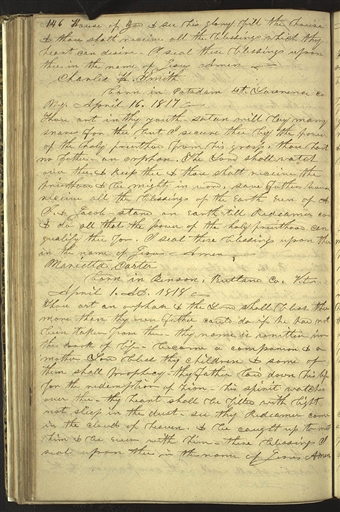 146 House of God & see his glory fill the house
& thou shalt receive all the blessings which thy
heart can desire. I seal these blessings upon
thee in the name of Jesus Amen
Charles H. Smith
born in Potsdam St. Lawrence co
N.Y. April 16. 1817
Thou art in thy youth. Satan will lay many
snares for thee but I secure thee by the power
of the holy priesthood from his grasp. thou hast
no father - an orphan. The Lord shall watch
over thee & keep thee & thou shalt receive the
priesthood & be mighty in word, save father's house
receive all the blessings of the Earth even of A
I. & Jacob stand on earth till Redeemer comes
& do all that the power of the holy priesthood can
qualify thee for. I seal these blessings upon thee
in the name of Jesus Amen
Marietta Carter
born in Benson, Rutland Co. Vt.
April 1. A.D. 1818
Thou art an orphan & the Lord shall bless thee
more than thy own father could do if he had not
been taken from thee. thy name is written in
the book of life - become a companion & a
mother God bless thy children & some of
them shall prophesy - thy father laid down his life
for the redemption of Zion - his spirit watches
over thee - thy heart shall be filled with light
not sleep in the dust - see thy Redeemer come
in the clouds of heaven. & be caught up to meet
him & be ever with him - these blessings I
seal upon thee in the name of Jesus Amen